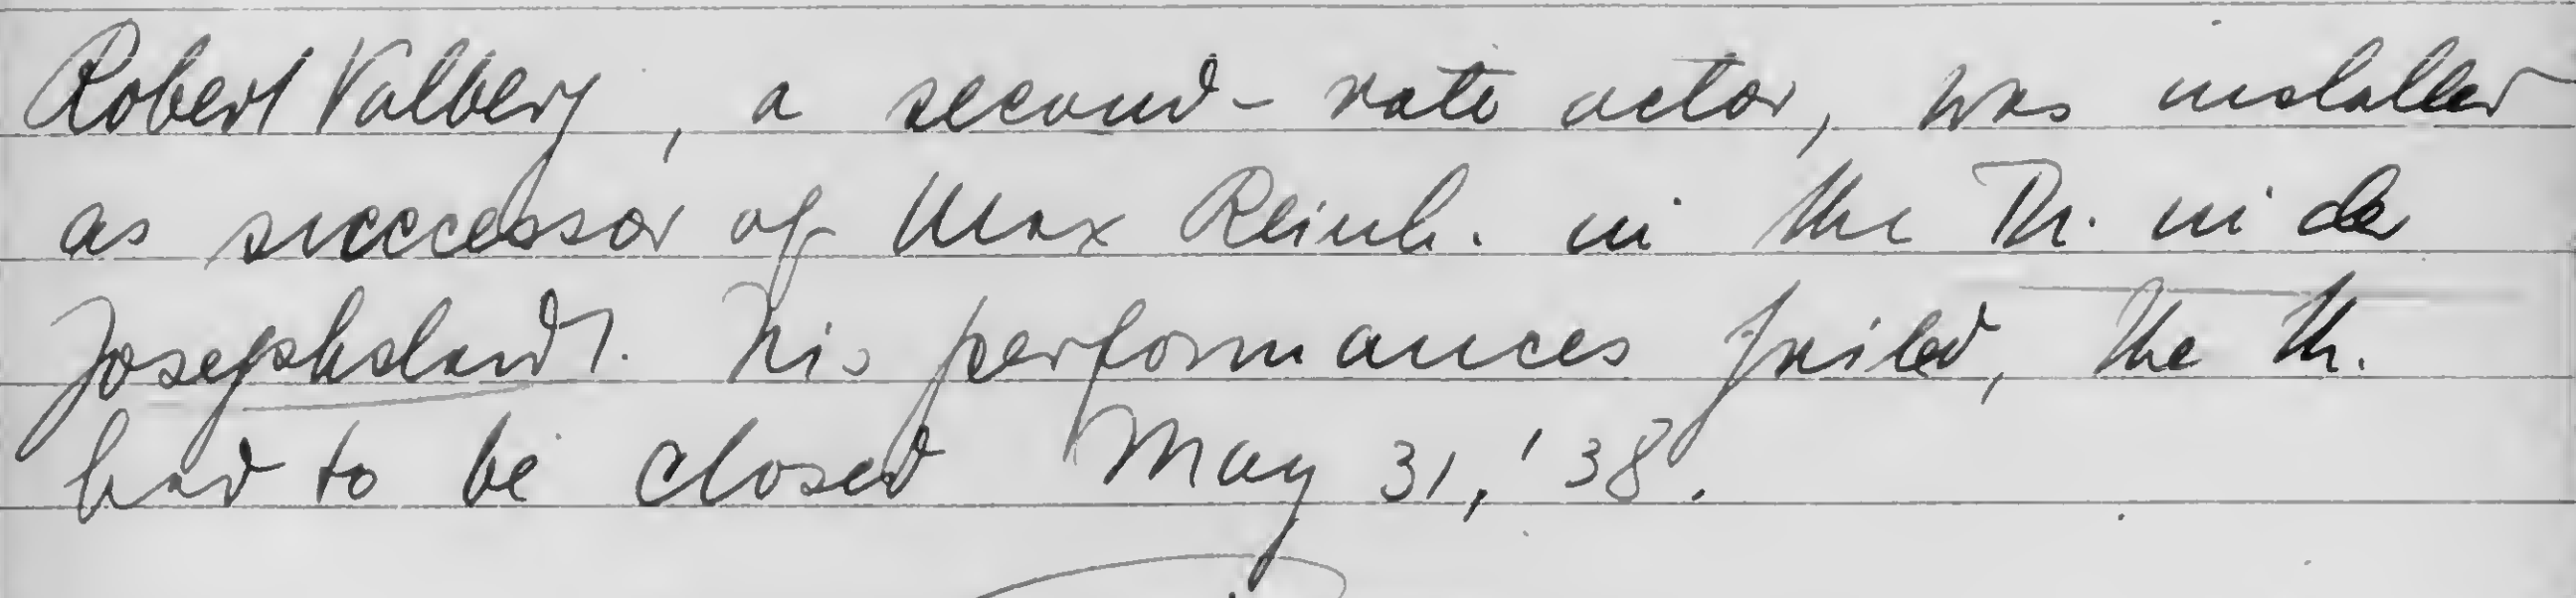 Robert Valberg, a second-rate actor, was installed
as successor of Max Reinh. in the Th. in der
Josephstadt. His performances failed, the th.
had to be closed May 31, '38.